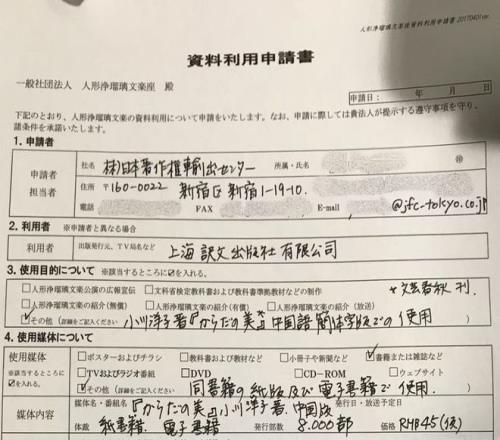 人形浄瑠璃文楽座資料利用申請書 20170401ver.
資料利用申請書
一般社団法人 人形浄瑠璃文楽座 殿
申請日: 年 月 日
下記のとおり、人形浄瑠璃文楽の資料利用について申請をいたします。なお、申請に際しては貴法人が提示する遵守事項を守り、
諸条件を承諾いたします。
1. 申請者
申請者
担当者
社名 (株)日本著作権輸出センター 所属・氏名 ㊞
住所 〒160-0022 新宿区新宿1-19-10.
電話 FAX E-mail @jfc-tokyo.co.jp
2. 利用者 ※申請者と異なる場合
利用者 出版発行元、TV局名など 上海訳文出版社有限公司
3. 使用目的について ※該当するところに☑を入れる。
□人形浄瑠璃文楽公演の広報宣伝 □文科省検定教科書および教科書準拠教材などの制作 *文芸春秋刊.
□人形浄瑠璃文楽の紹介(無償) □人形浄瑠璃文楽の紹介(有償) □人形浄瑠璃文楽の紹介(放送)
☑その他(詳細をご記入ください) 小川洋子著『からだの美』中国語簡体字版での使用)
4. 使用媒体について
使用媒体
※該当するところに
☑を入れる。
□ポスターおよびチラシ □教科書および教材など □小冊子や新聞など ☑書籍または雑誌など
□TVおよびラジオ番組 □DVD □CD-ROM □ウェブサイト
☑その他(詳細をご記入ください) 同書籍の紙版及び電子書籍で使用.)
媒体内容
媒体名・番組名 『からだの美』小川洋子著.中国版 発行日・放送予定日
体裁 紙書籍.電子書籍 発行部数 8.000部 価格 RMB45(仮)